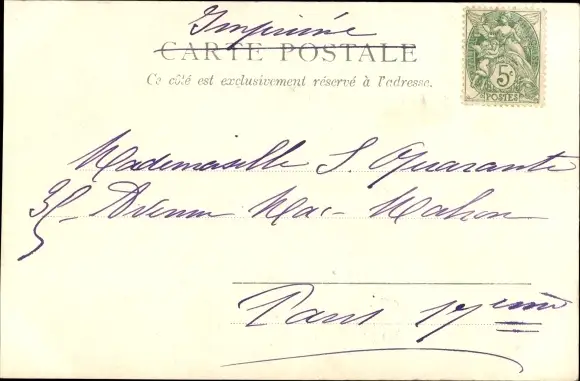 Imprimé
CARTE POSTALE
Ce côté est exclusivement réservé à l'adresse.
5c
POSTES
Mademoiselle S. Quarante
35 Avenue Mac-Mahon
Paris 17eme